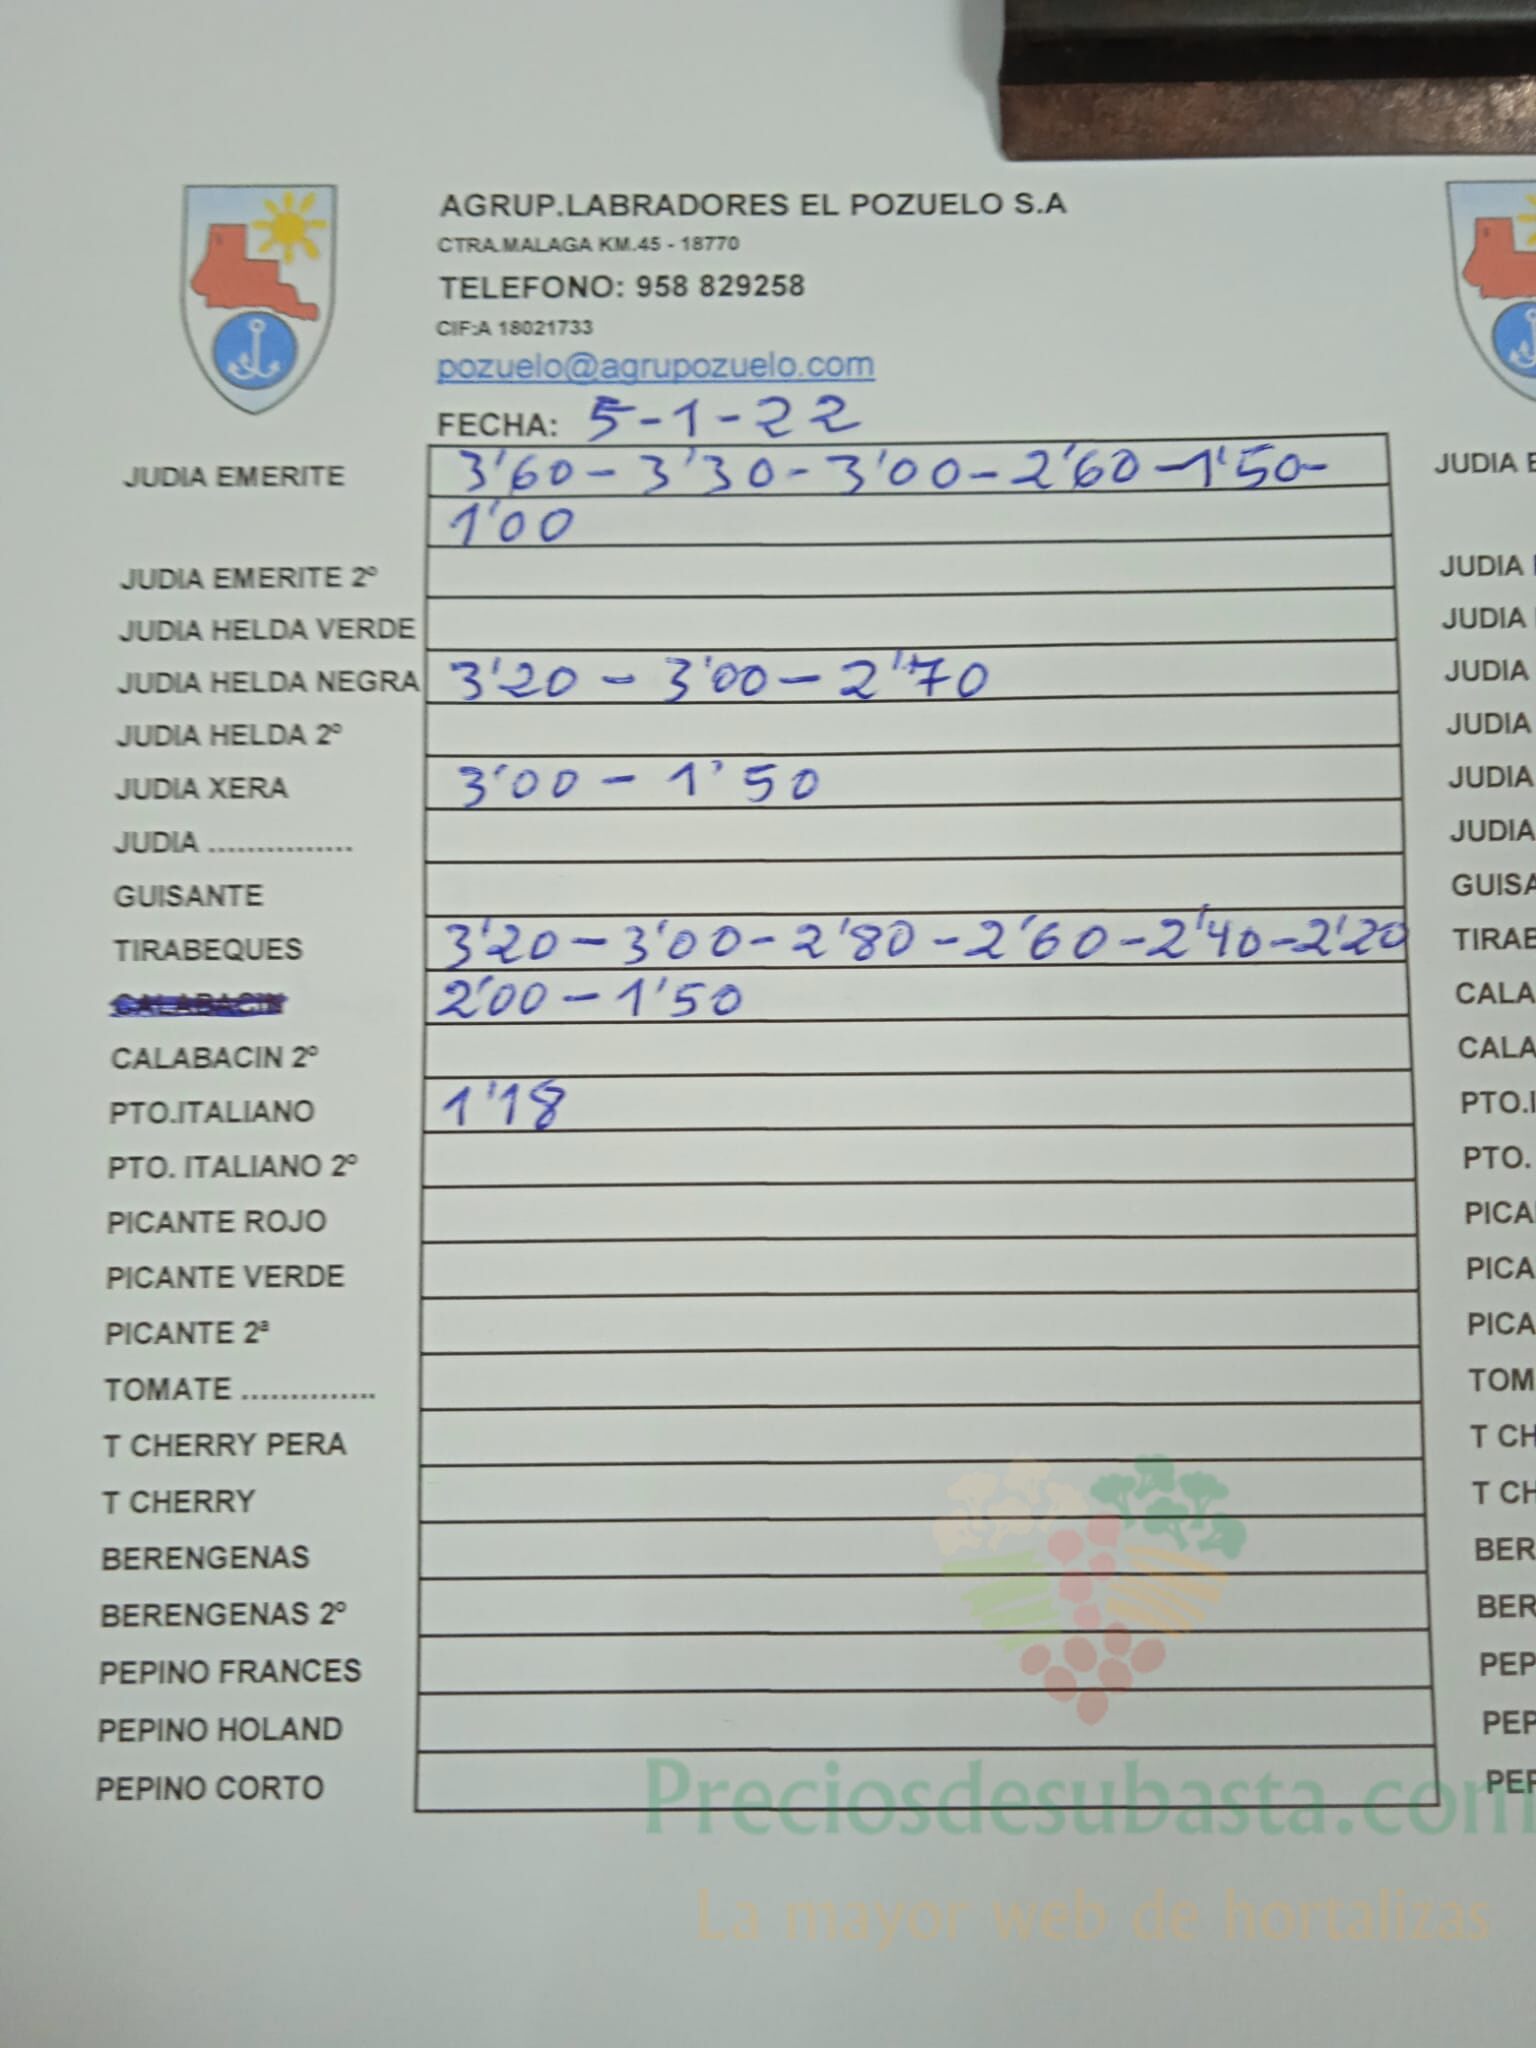 AGRUP.LABRADORES EL POZUELO S.A
CTRA.MALAGA KM.45 - 18770
TELEFONO: 958 829258
CIF:A 18021733
pozuelo@agrupozuelo.com
FECHA: 5-1-22
JUDIA EMERITE 3'60 - 3'30 - 3'00 - 2'60 - 1'50 -
1'00
JUDIA EMERITE 2º
JUDIA HELDA VERDE
JUDIA HELDA NEGRA 3'20 - 3'00 - 2'70
JUDIA HELDA 2º
JUDIA XERA 3'00 - 1'50
JUDIA ...............
GUISANTE
TIRABEQUES 3'20 - 3'00 - 2'80 - 2'60 - 2'40 - 2'20
CALABACIN 2'00 - 1'50
CALABACIN 2º
PTO.ITALIANO 1'18
PTO. ITALIANO 2º
PICANTE ROJO
PICANTE VERDE
PICANTE 2ª
TOMATE ..............
T CHERRY PERA
T CHERRY
BERENGENAS
BERENGENAS 2º
PEPINO FRANCES
PEPINO HOLAND
PEPINO CORTO
JUDIA E
JUDIA
JUDIA
JUDIA
JUDIA
JUDIA
JUDIA
GUISA
TIRABE
CALA
CALA
PTO.I
PTO.
PICA
PICA
PICA
TOM
T CH
T CH
BER
BER
PEP
PEP
PEP
Preciosdesubasta.com
La mayor web de hortalizas